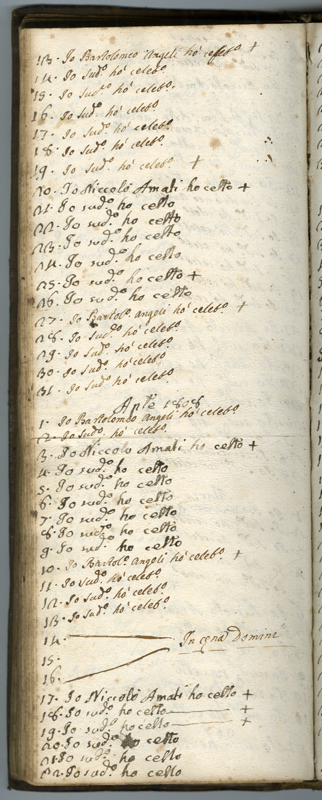 13. Io Bartolomeo Angeli hò celebº +
14. Io Sudº hò celebº
15. Io Sudº hò celebº
16. Io Sudº hò celebº
17. Io Sudº hò celebº
18. Io Sudº hò celebº
19. Io Sudº hò celebº +
20. Io Niccolò Amati ho cełło +
21. Io sudº ho cełło
22. Io sudº ho cełło
23. Io sudº ho cełło
24. Io sudº ho cełło
25. Io sudº ho cełło +
26. Io sudº ho cełło
27. Io Bartolº Angeli hò celebº +
28. Io Sudº hò celebº
29. Io Sudº hò celebº
30. Io Sudº hò celebº
31. Io Sudº hò celebº
Aple 1808
1. Io Bartolomeo Angeli hò celebº
2. Io Sudº hò celebº
3. Io Niccolò Amati ho cełło +
4. Io sudº ho cełło
5. Io sudº ho cełło
6. Io sudº ho cełło
7. Io sudº ho cełło
8. Io sudº ho cełło
9. Io sudº ho cełło
10. Io Bartolº Angeli hò celebº +
11. Io Sudº hò celebº
12. Io Sudº hò celebº
13. Io Sudº hò celebº
14. In cęna Domini
15.
16.
17. Io Niccolò Amati ho cełło +
18. Io sudº ho cełło +
19. Io sudº ho cełło +
20. Io sudº ho cełło
21. Io sudº ho cełło
22. Io sudº ho cełło